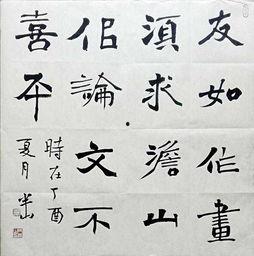 友如作畫
須求澹山
佀論文不
喜平
時在丁酉
夏月